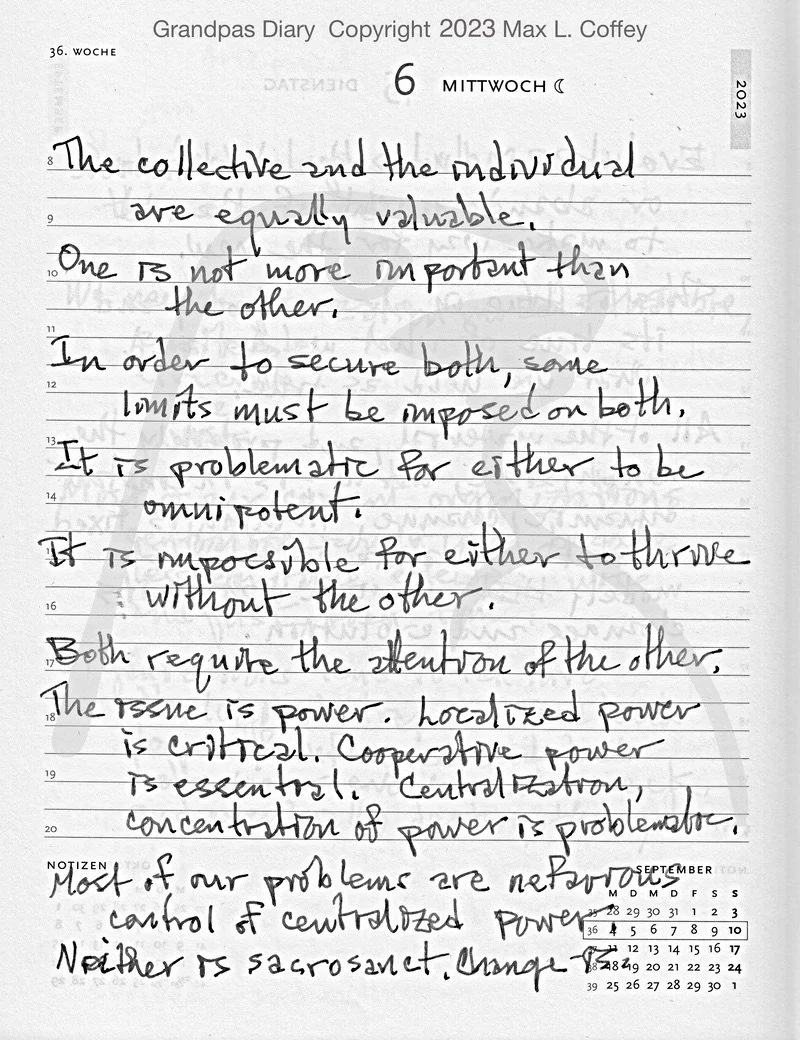 Grandpas Diary Copyright 2023 Max L. Coffey
36. WOCHE
6 MITTWOCH
2023
8 The collective and the individual
9 are equally valuable.
10 One is not more important than
the other.
11
In order to secure both, some
12 limits must be imposed on both.
13 It is problematic for either to be
14 omnipotent.
It is impossible for either to thrive
16 without the other.
17 Both require the attention of the other.
18 The issue is power. Localized power
is critical. Cooperative power
19 is essential. Centralization,
20 concentration of power is problematic.
NOTIZEN
Most of our problems are nefarious
control of centralized power
Neither is sacrosanct. Change is.
SEPTEMBER
M D M D F S S
35 28 29 30 31 1 2 3
36 4 5 6 7 8 9 10
11 12 13 14 15 16 17
38 18 19 20 21 22 23 24
39 25 26 27 28 29 30 1